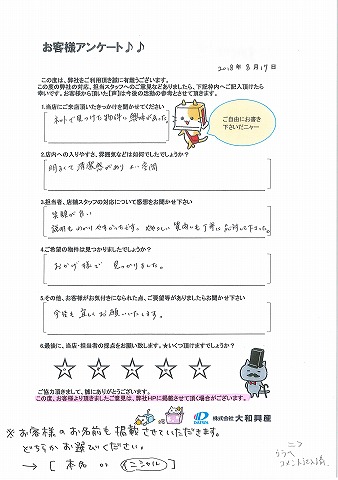 お客様アンケート♪♪
2018年8月17日
この度は、弊社をご利用頂き誠に有難うございます。
この度の弊社の対応、担当スタッフへのご意見などありましたら、下記枠内へご記入頂けたら
幸いです。お客様から頂いた【声】は今後の活動の参考とさせて頂きます。
1.当店にご来店頂いたきっかけをお聞かせください
ネットで見つけた物件に興味があった
ご自由にお書き
下さいだニャー
2.店内への入りやすさ、雰囲気などは如何でしたでしょうか?
明るくて清潔感があり よい空間
3.担当者、店舗スタッフの対応について感想をお聞かせ下さい
笑顔が良い
説明もわかりやすかったです。
質問にも丁寧に
4.ご希望の物件は見つかりましたでしょうか?
おかげ様で 見つかりました。
5.その他、お客様がお気付きになられた点、ご要望等がありましたらお聞かせ下さい
今後も宜しくお願いいたします。
6.最後に、当店・担当者の採点をお願い致します。★いくつ頂けますでしょうか?
ご協力頂きまして、誠にありがとうございます。
この度、お客様より頂きましたご意見は、弊社HPに掲載させて頂く場合がございます。
DAIWA 株式会社 大和興産
※お客様のお名前も掲載させていただきます。
どちらかお選びください。
→ [ 本名 or イニシャル ]